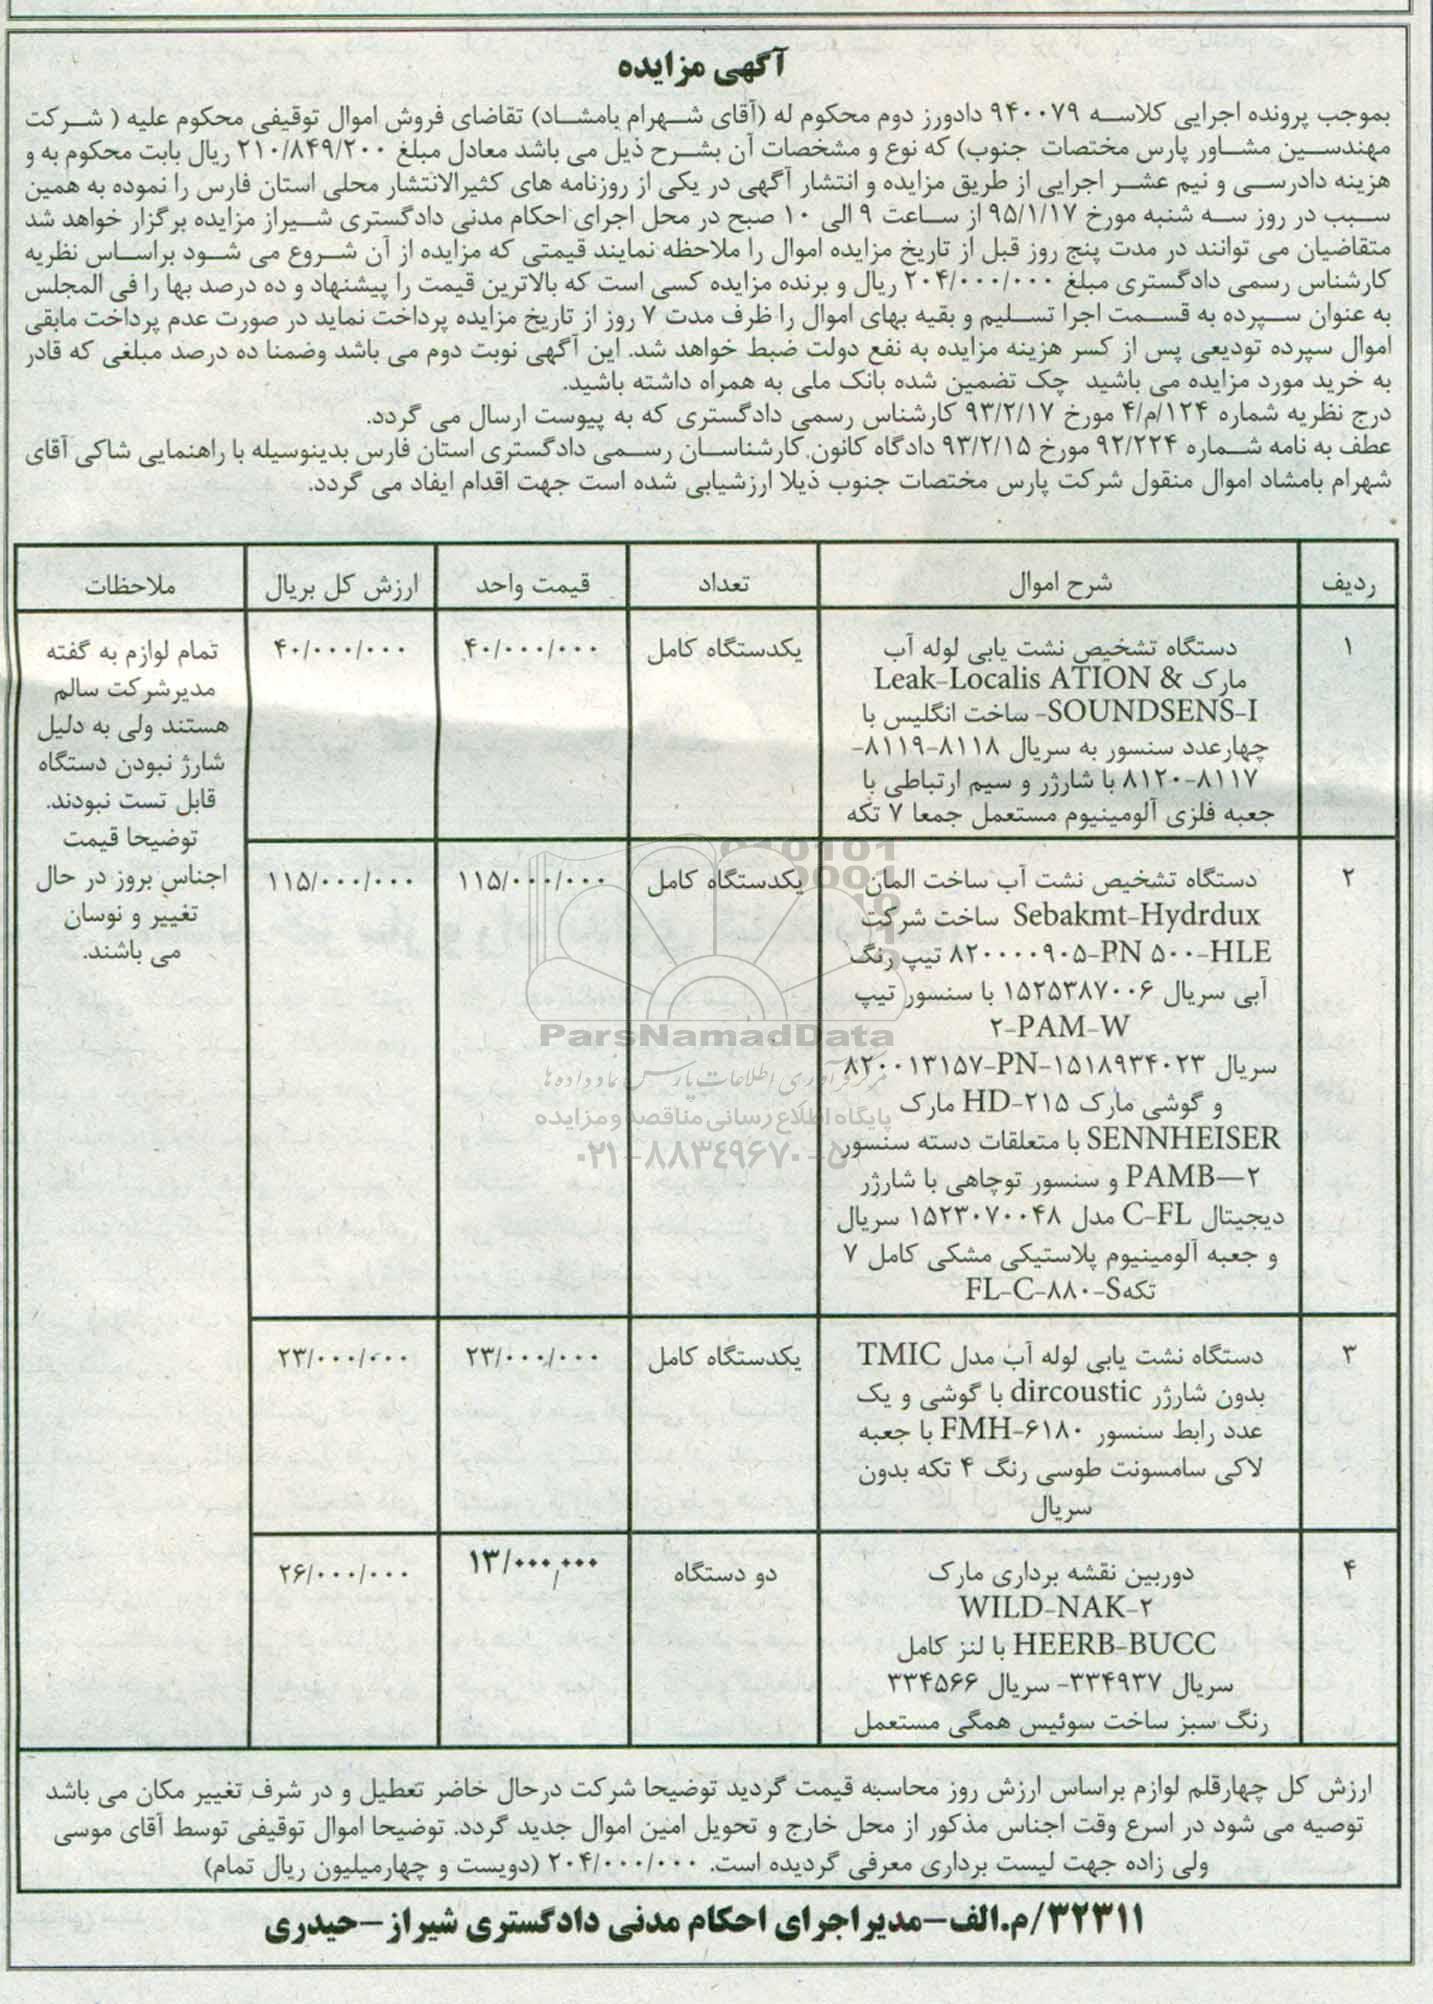 آگهی مزایده
بموجب پرونده اجرایی کلاسه ۹۴۰۰۷۹ دادورز دوم محکوم له (آقای شهرام بامشاد) تقاضای فروش اموال توقیفی محکوم علیه ( شرکت
مهندسین مشاور پارس مختصات جنوب) که نوع و مشخصات آن بشرح ذیل می باشد معادل مبلغ ۲۱۰/۸۴۹/۲۰۰ ریال بابت محکوم به و
هزینه دادرسی و نیم عشر اجرایی از طریق مزایده و انتشار آگهی در یکی از روزنامه های کثیرالانتشار محلی استان فارس را نموده به همین
سبب در روز سه شنبه مورخ ۹۵/۱/۱۷ از ساعت ۹ الی ۱۰ صبح در محل اجرای احکام مدنی دادگستری شیراز مزایده برگزار خواهد شد
متقاضیان می توانند در مدت پنج روز قبل از تاریخ مزایده اموال را ملاحظه نمایند قیمتی که مزایده از آن شروع می شود براساس نظریه
کارشناس رسمی دادگستری مبلغ ۲۰۴/۰۰۰/۰۰۰ ریال و برنده مزایده کسی است که بالاترین قیمت را پیشنهاد و ده درصد بها را فی المجلس
به عنوان سپرده به قسمت اجرا تسلیم و بقیه بهای اموال را ظرف مدت ۷ روز از تاریخ مزایده پرداخت نماید در صورت عدم پرداخت مابقی
اموال سپرده تودیعی پس از کسر هزینه مزایده به نفع دولت ضبط خواهد شد. این آگهی نوبت دوم می باشد وضمنا ده درصد مبلغی که قادر
به خرید مورد مزایده می باشید چک تضمین شده بانک ملی به همراه داشته باشید.
درج نظریه شماره ۱۲۴/م/۴ مورخ ۹۳/۲/۱۷ کارشناس رسمی دادگستری که به پیوست ارسال می گردد.
عطف به نامه شماره ۹۲/۲۲۴ مورخ ۹۳/۲/۱۵ دادگاه کانون کارشناسان رسمی دادگستری استان فارس بدینوسیله با راهنمایی شاکی آقای
شهرام بامشاد اموال منقول شرکت پارس مختصات جنوب ذیلا ارزشیابی شده است جهت اقدام ایفاد می گردد.
ردیف شرح اموال تعداد قیمت واحد ارزش کل بریال ملاحظات
۱ دستگاه تشخیص نشت یابی لوله آب یکدستگاه کامل ۴۰/۰۰۰/۰۰۰ ۴۰/۰۰۰/۰۰۰
مارک Leak-Localis ATION &
SOUNDSENS-I- ساخت انگلیس با
چهارعدد سنسور به سریال ۸۱۱۸-۸۱۱۹-
۸۱۱۷-۸۱۲۰ با شارژر و سیم ارتباطی با
جعبه فلزی آلومینیوم مستعمل جمعا ۷ تکه
تمام لوازم به گفته
مدیرشرکت سالم
هستند ولی به دلیل
شارژ نبودن دستگاه
قابل تست نبودند.
توضیحا قیمت
اجناس بروز در حال
تغییر و نوسان
می باشند.
۲ دستگاه تشخیص نشت آب ساخت المان یکدستگاه کامل ۱۱۵/۰۰۰/۰۰۰ ۱۱۵/۰۰۰/۰۰۰
Sebakmt-Hydrdux ساخت شرکت
۸۲۰۰۰۰۹۰۵-PN ۵۰۰-HLE تیپ رنگ
آبی سریال ۱۵۲۵۳۸۷۰۰۶ با سنسور تیپ
۲-PAM-W
سریال ۸۲۰۰۱۳۱۵۷-PN-۱۵۱۸۹۳۴۰۲۳
و گوشی مارک HD-۲۱۵ مارک
SENNHEISER با متعلقات دسته سنسور
PAMB—۲ و سنسور توچاهی با شارژر
دیجیتال C-FL مدل ۱۵۲۳۰۷۰۰۴۸ سریال
و جعبه آلومینیوم پلاستیکی مشکی کامل ۷
تکه FL-C-۸۸۰-S
۳ دستگاه نشت یابی لوله آب مدل TMIC یکدستگاه کامل ۲۳/۰۰۰/۰۰۰ ۲۳/۰۰۰/۰۰۰
بدون شارژر dircoustic با گوشی و یک
عدد رابط سنسور FMH-۶۱۸۰ با جعبه
لاکی سامسونت طوسی رنگ ۴ تکه بدون
سریال
۴ دوربین نقشه برداری مارک دو دستگاه ۱۳/۰۰۰/۰۰۰ ۲۶/۰۰۰/۰۰۰
WILD-NAK-۲
HEERB-BUCC با لنز کامل
سریال ۳۳۴۹۳۷- سریال ۳۳۴۵۶۶
رنگ سبز ساخت سوئیس همگی مستعمل
ارزش کل چهارقلم لوازم براساس ارزش روز محاسبه قیمت گردید توضیحا شرکت درحال حاضر تعطیل و در شرف تغییر مکان می باشد
توصیه می شود در اسرع وقت اجناس مذکور از محل خارج و تحویل امین اموال جدید گردد. توضیحا اموال توقیفی توسط آقای موسی
ولی زاده جهت لیست برداری معرفی گردیده است. ۲۰۴/۰۰۰/۰۰۰ (دویست و چهارمیلیون ریال تمام)
۳۲۳۱۱/م.الف-مدیراجرای احکام مدنی دادگستری شیراز-حیدری
ParsNamadData
مرکز فرآوری اطلاعات پارس نماد داده ها
پایگاه اطلاع رسانی مناقصه و مزایده
۰۲۱-۸۸۳۴۹۶۷۰-۵